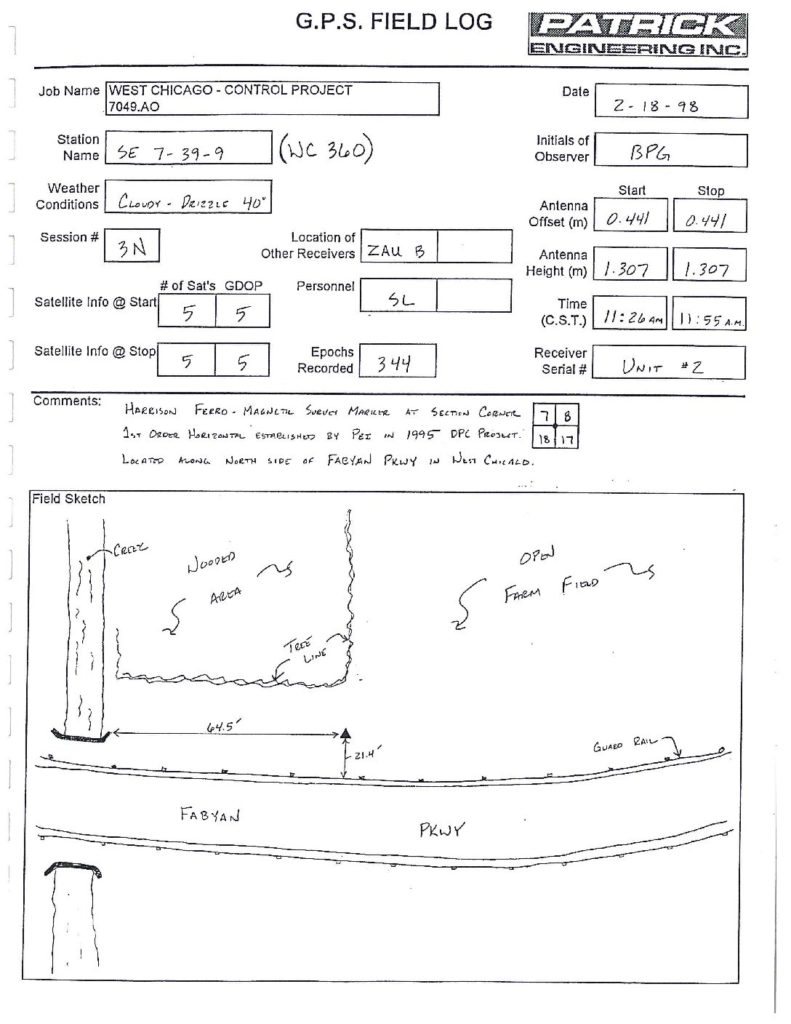 G.P.S. FIELD LOG
PATRICK
ENGINEERING INC.
Job Name WEST CHICAGO - CONTROL PROJECT
7049.AO
Date 2-18-98
Station Name SE 7-39-9 (WC 360)
Initials of Observer BPG
Weather Conditions CLOUDY - DRIZZLE 40°
Start Stop
Antenna Offset (m) 0.441 0.441
Session # 3N
Location of Other Receivers ZAU B
Antenna Height (m) 1.307 1.307
# of Sat's GDOP
Personnel SL
Satellite Info @ Start 5 5
Time (C.S.T.) 11:26 AM 11:55 A.M.
Satellite Info @ Stop 5 5
Epochs Recorded 344
Receiver Serial # UNIT #2
Comments:
HARRISON FERRO-MAGNETIC SURVEY MARKER AT SECTION CORNER
7 8
18 17
1ST ORDER HORIZONTAL ESTABLISHED BY PEI IN 1995 DPC PROJECT.
LOCATED ALONG NORTH SIDE OF FABYAN PKWY IN WEST CHICAGO.
Field Sketch
CREEK
WOODED
AREA
OPEN
FARM FIELD
TREE
LINE
64.5'
21.4'
GUARD RAIL
FABYAN PKWY